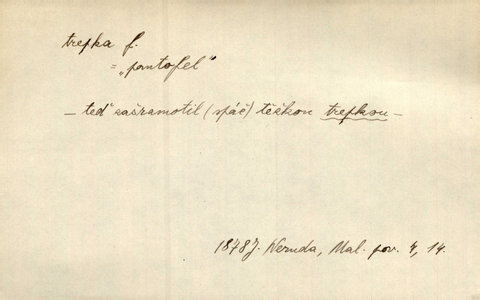 trepka f.
= „pantofel“
— teď zašramotil (spáč) těžkou trepkou —
1878 J. Neruda, Mal. pov. 4, 14.